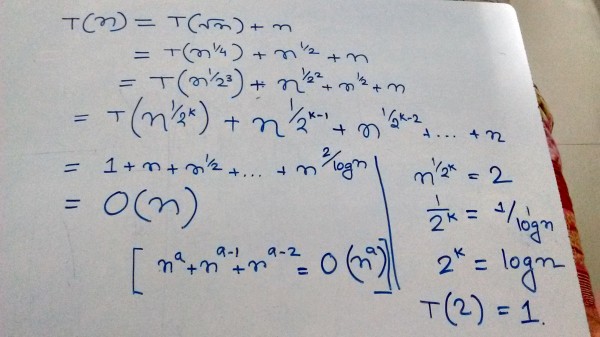 T(n) = T(√n) + n
= T(n^1/4) + n^1/2 + n
= T(n^1/2^3) + n^1/2^2 + n^1/2 + n
= T(n^1/2^k) + n^1/2^k-1 + n^1/2^k-2 + ... + n
= 1 + n + n^1/2 + ... + n^2/logn
= O(n)
[n^a + n^a-1 + n^a-2 = O(n^a)]
n^1/2^k = 2
1/2^k = 1/logn
2^k = logn
T(2) = 1.